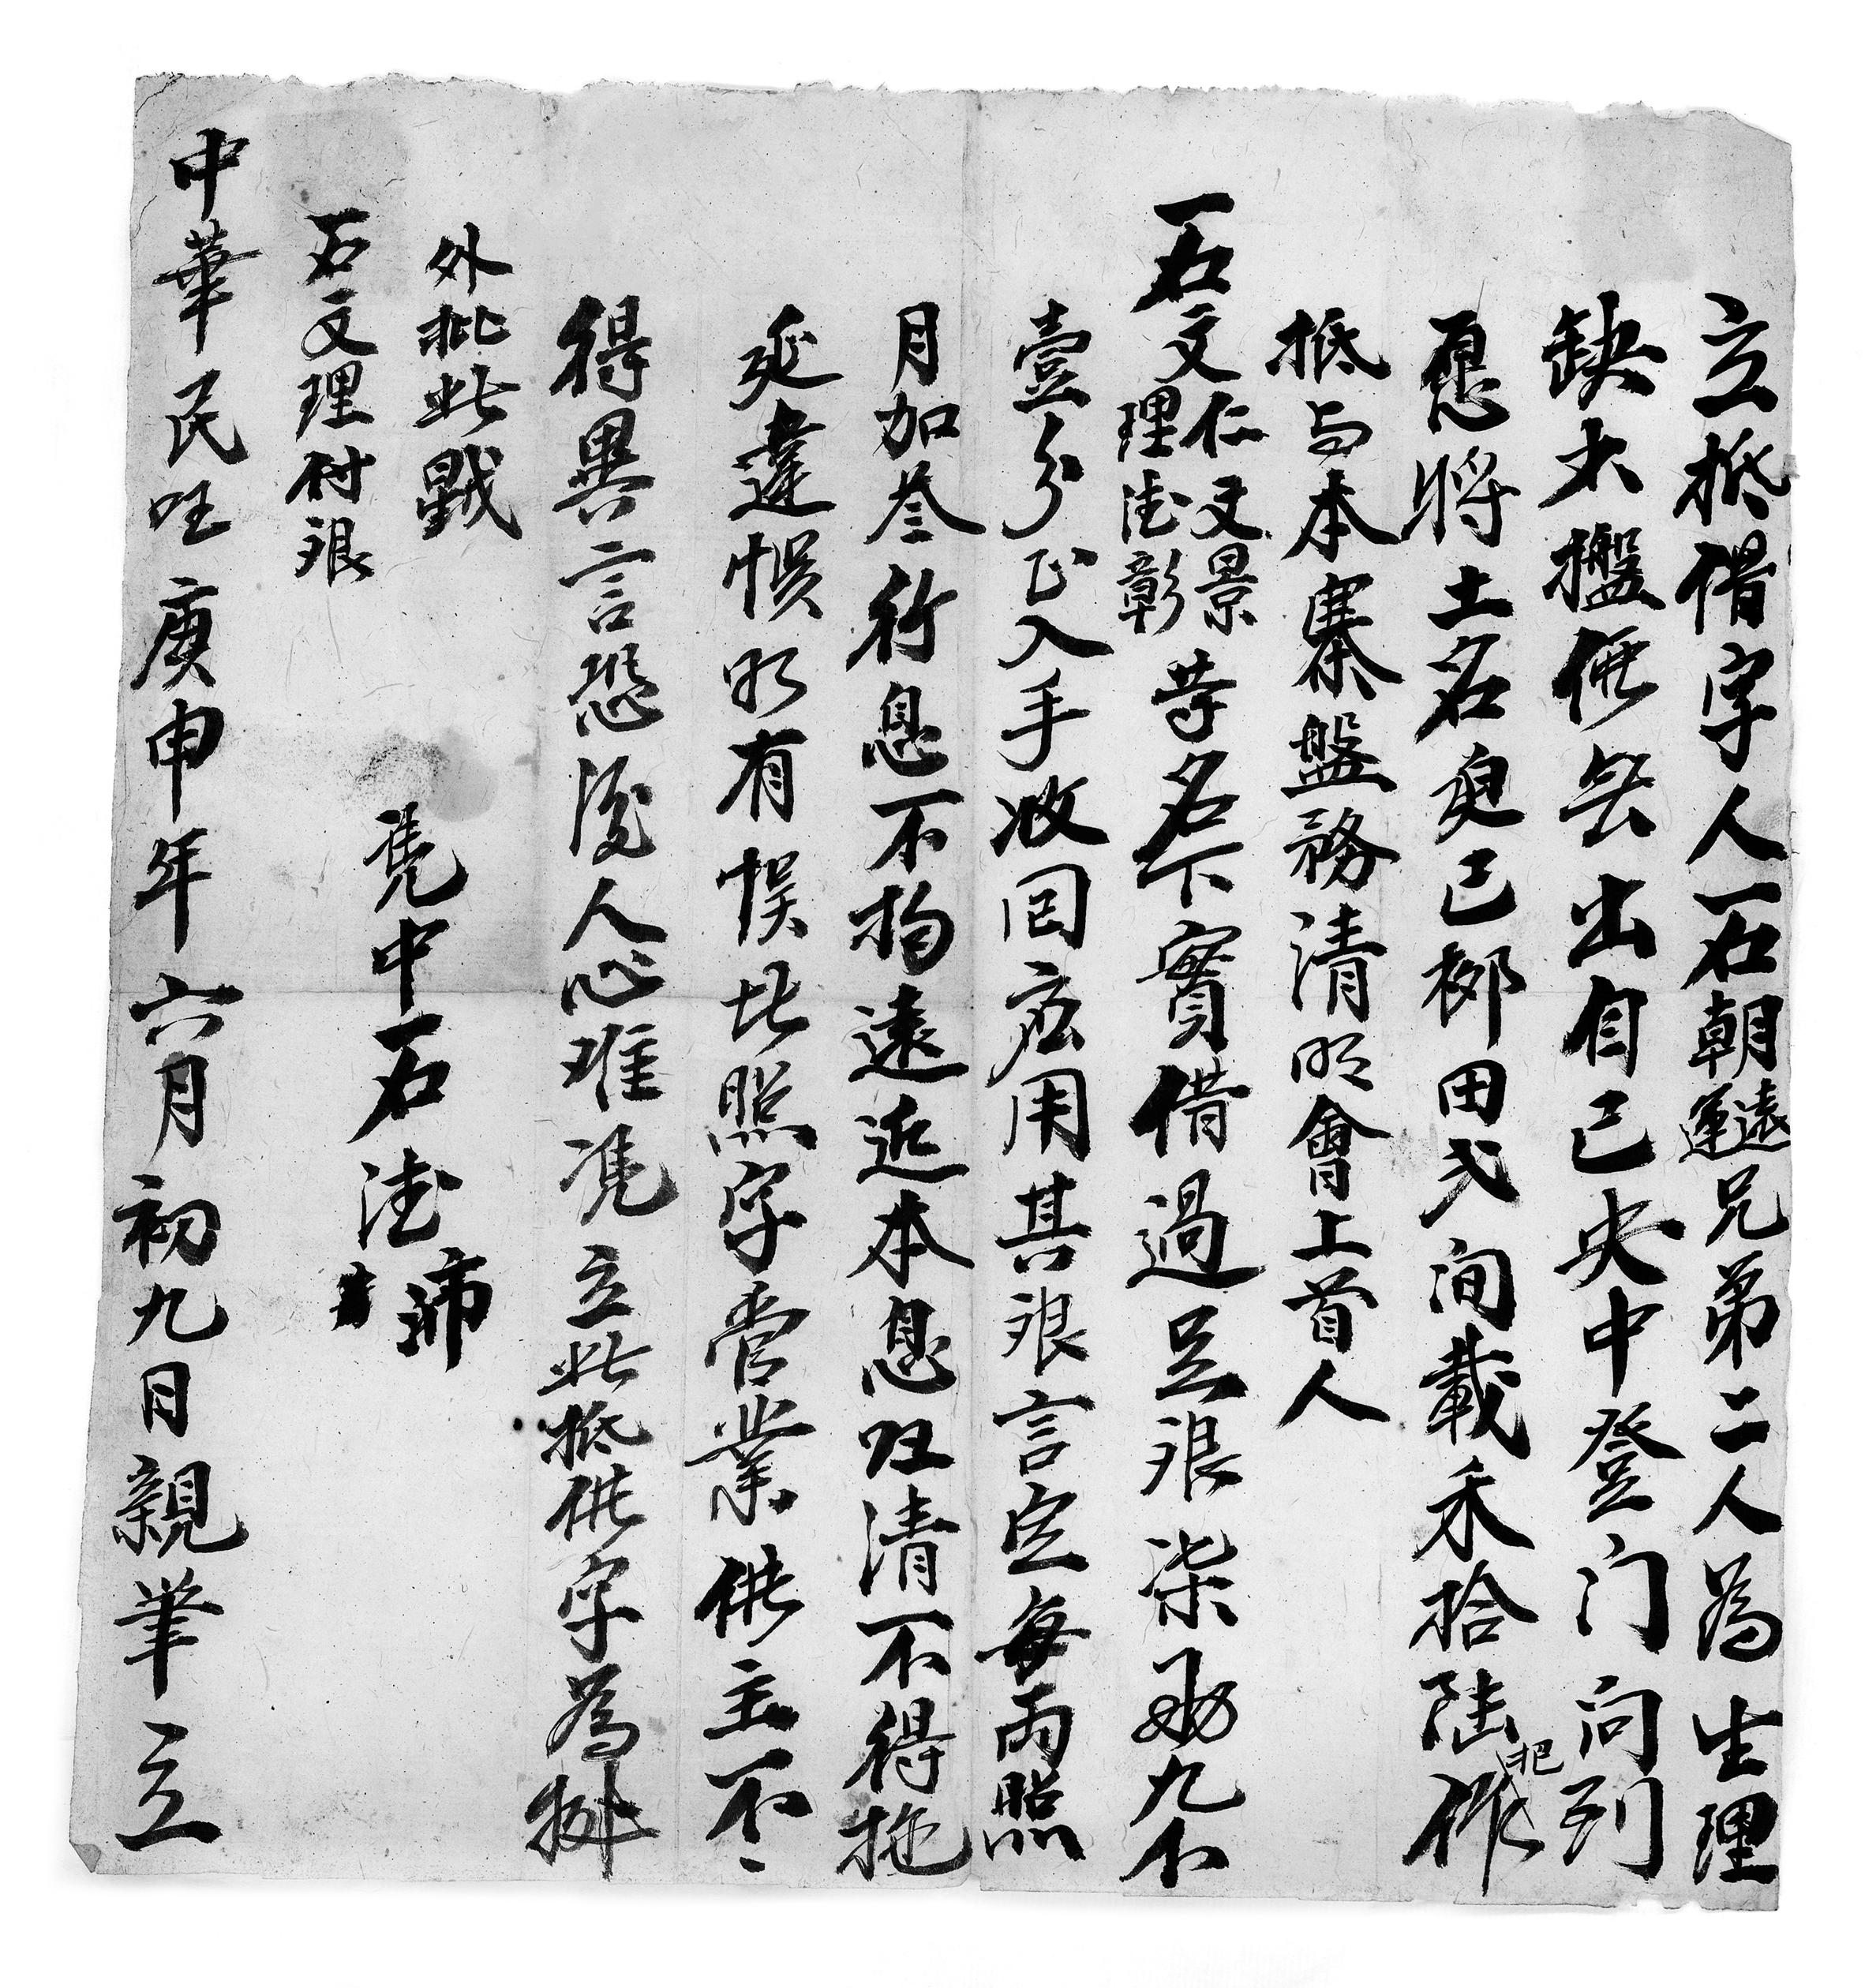 立抵借字人石朝遠運兄弟二人為生理
缺少盤伢無出自己央中登门问到
愿將土名更己鄉田弍间載禾拾陆把作
抵与本寨盤務清明會上首人
石文仁理文德景彰等名下實借過足銀柒両九卜
壹分正入手收回应用其銀言定每両照
月加叁行息不拘遠近本息旺清不得拖
延違悮如有悮此照字管業供主不
得異言恐後人心难凭立此抵供字為拠
外批此戥
石文理付銀
凭中石德沛
中華民旺庚申年六月初九日親筆立